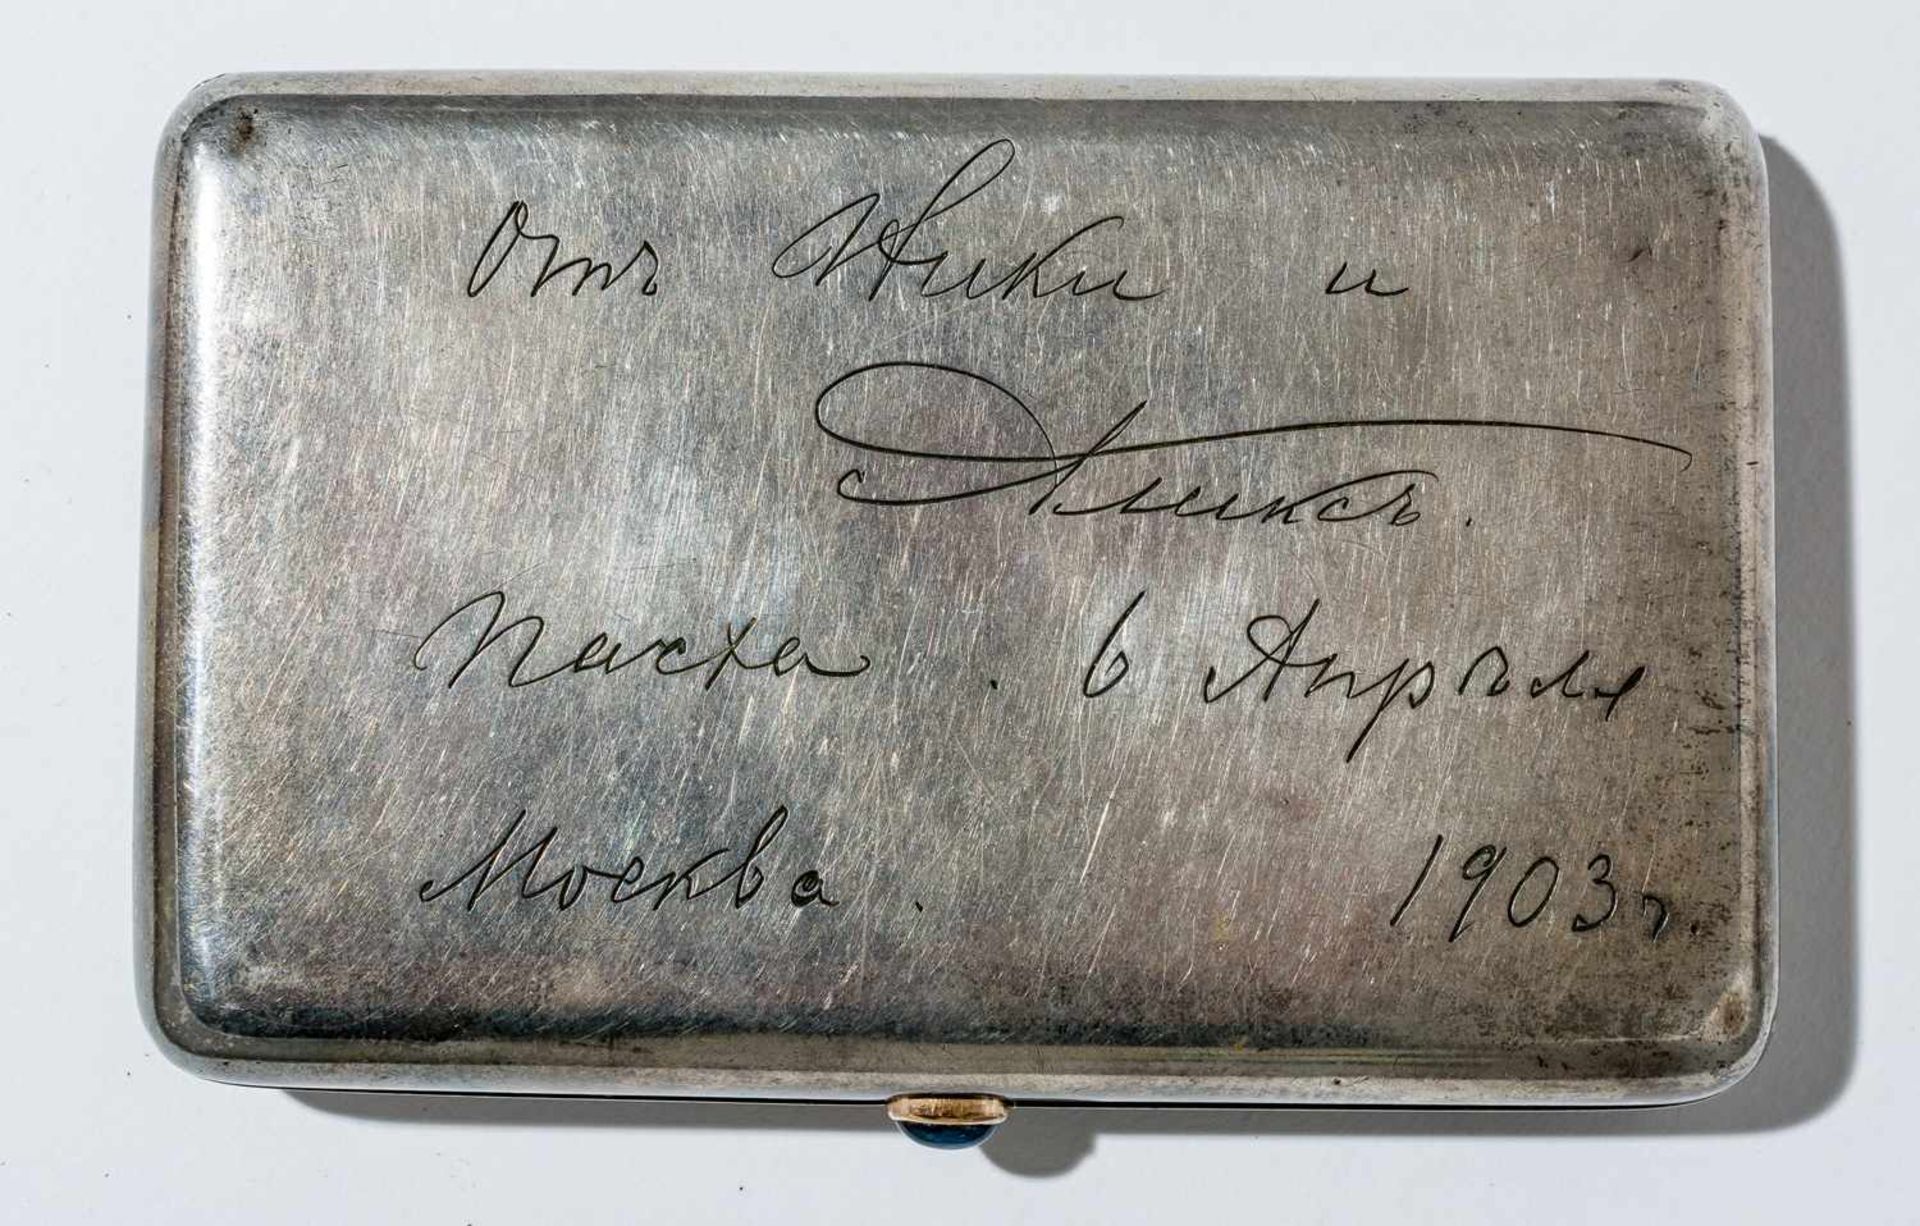 Отъ Ники и
Аликсъ.
Пасха. 6 Апрѣля
Москва. 1903 г.